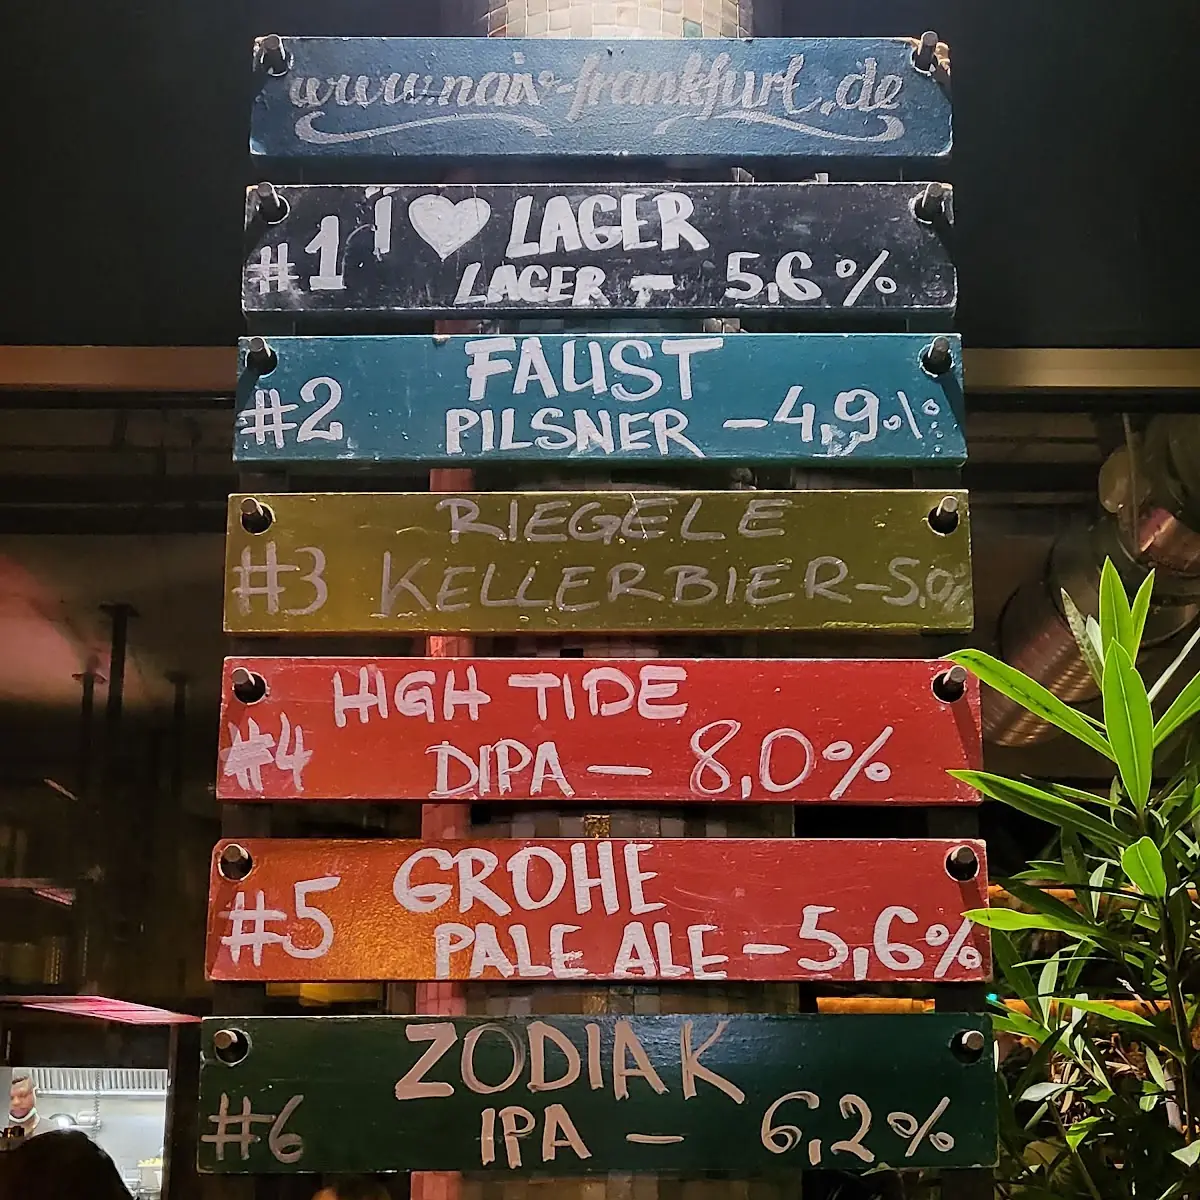 www.naiv-frankfurt.de
#1 I ♥ LAGER
LAGER - 5,6%
#2 FAUST
PILSNER - 4,9%
#3 RIEGELE
KELLERBIER - 5,0%
#4 HIGH TIDE
DIPA - 8,0%
#5 GROHE
PALE ALE - 5,6%
#6 ZODIAK
IPA - 6,2%